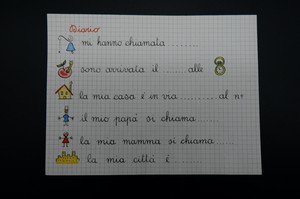 Diario
mi hanno chiamata ........
sono arrivata il ...... alle 8
la mia casa è in via ......... al n°
il mio papà si chiama ......
la mia mamma si chiama ....
la mia città è ......